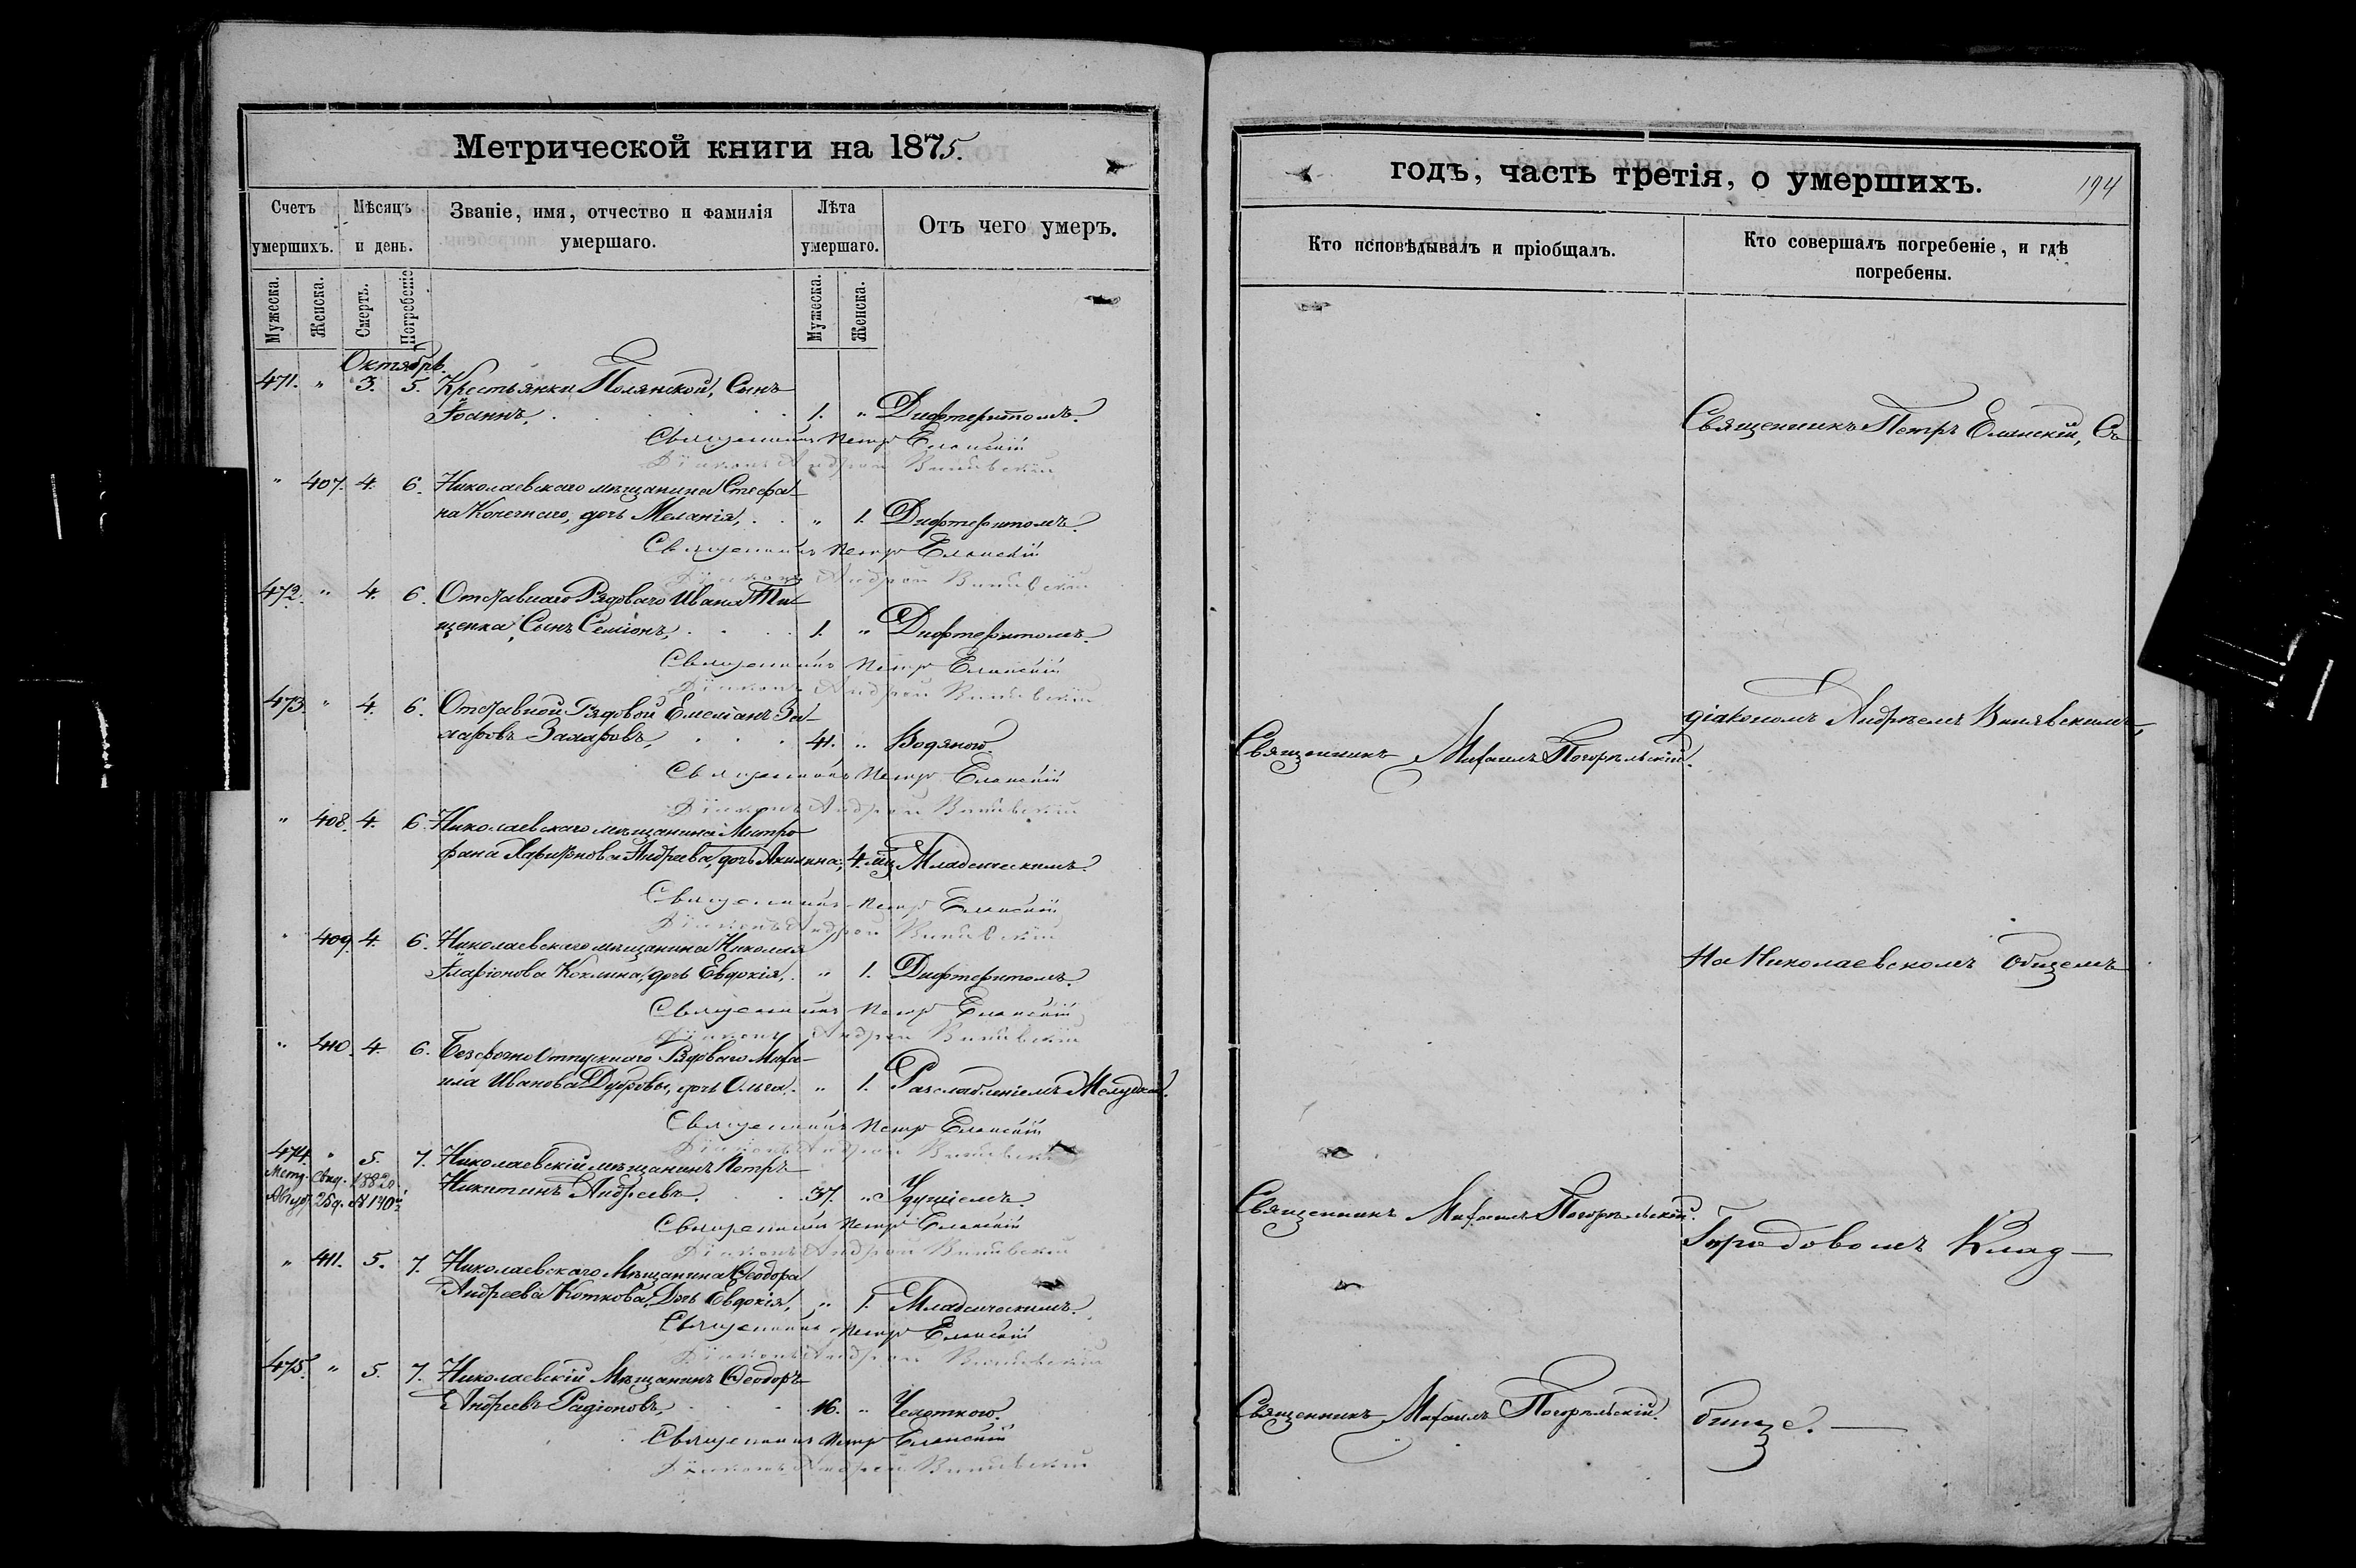 Метрической книги на 1875.
Счетъ умершихъ.
Мѣсяцъ и день.
Званіе, имя, отчество и фамилія умершаго.
Лѣта умершаго.
Отъ чего умеръ.
Мужеска. Женска. Смерть. Погребеніе. Мужеска. Женска.
Октябрь.
471. " 3. 5. Крестьянки Полянской, Сынъ
Іоаннъ, 1. " Дифтеритомъ.
Священникъ Петръ Еланскій
Діаконъ Андрей
" 407. 4. 6. Николаевскаго мѣщанина Стефа-
на Конечнаго, дочь Меланія, " 1. Дифтеритомъ.
Священникъ Петръ Еланскій
Діаконъ Андрей
472. " 4. 6. Отставнаго Рядоваго Ивана Ти-
щенка Сынъ Семіонъ, 1. " Дифтеритомъ.
Священникъ Петръ Еланскій
Діаконъ Андрей
473. " 4. 6. Отставной Рядовой Емеліанъ За-
харовъ Захаровъ, 41. " Водяною.
Священникъ Петръ Еланскій
Діаконъ Андрей
" 408. 4. 6. Николаевскаго мѣщанина Митро-
фана Андреева, дочь Акилина, 4. мц. Младенческимъ.
Священникъ Петръ Еланскій
Діаконъ Андрей
" 409. 4. 6. Николаевскаго мѣщанина Николая
Иларіонова дочь Евдокія, " 1. Дифтеритомъ.
Священникъ Петръ Еланскій
Діаконъ Андрей
" 410. 4. 6. Безсрочно Отпускнаго Рядоваго Миха-
ила Иванова Дубровы, дочь Ольга. " 1. Разслабленіемъ Желудка.
Священникъ Петръ Еланскій
Діаконъ Андрей
474. " 5. 7. Николаевскій мѣщанинъ Петръ
Никитинъ Андреевъ. 37. " Удушіемъ.
Метр. Свид. 1882 г.
25 д. № 140
Священникъ Петръ Еланскій
Діаконъ Андрей
" 411. 5. 7. Николаевскаго Мѣщанина Ѳеодора
Андреева Коткова, Дочь Евдокія, " 1. Младенческимъ.
Священникъ Петръ Еланскій
Діаконъ Андрей
475. " 5. 7. Николаевскій Мѣщанинъ Ѳеодоръ
Андреевъ Радіоновъ, 16. " Чахоткою.
Священникъ Петръ Еланскій
Діаконъ Андрей
годъ, часть третія, о умершихъ.
194
Кто исповѣдывалъ и пріобщалъ.
Кто совершалъ погребеніе, и гдѣ погребены.
Священникъ Петръ Еланскій, Съ
діакономъ Андреемъ
Священникъ Михаилъ Погорѣльскій.
На Николаевскомъ Общемъ
Священникъ Михаилъ Погорѣльскій.
Городовомъ Клад-
Священникъ Михаилъ Погорѣльскій.
бищѣ.